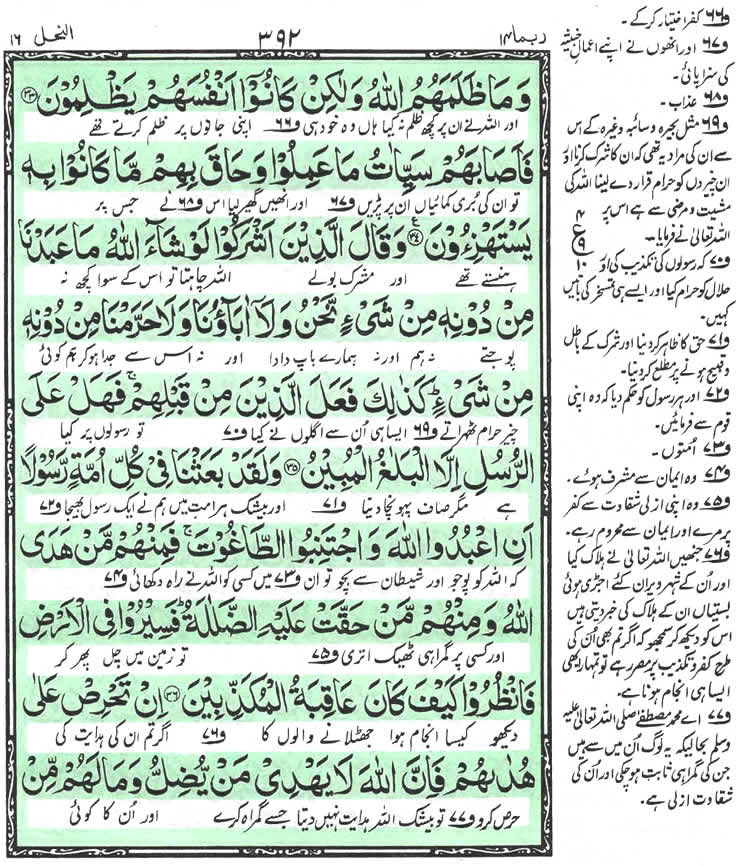 ربما ۱۴
۳۹۲
النحل ۱۶
وَمَا ظَلَمَهُمُ اللّٰهُ وَلٰكِنْ كَانُوْۤا اَنْفُسَهُمْ يَظْلِمُوْنَ ۳۳
اور اللہ نے ان پر کچھ ظلم نہ کیا ہاں وہ خود ہی و۶۶ اپنی جانوں پر ظلم کرتے تھے
فَاَصَابَهُمْ سَيِّاٰتُ مَا عَمِلُوْا وَحَاقَ بِهِمْ مَّا كَانُوْا بِهٖ
تو ان کی بُری کمائیاں ان پر پڑیں و۶۷ اور انھیں گھیر لیا اس و۶۸ نے جس پر
يَسْتَهْزِءُوْنَ ۳۴ وَقَالَ الَّذِيْنَ اَشْرَكُوْا لَوْ شَآءَ اللّٰهُ مَا عَبَدْنَا
ہنستے تھے اور مشرک بولے اللہ چاہتا تو اس کے سوا کچھ نہ
مِنْ دُوْنِهٖ مِنْ شَيْءٍ نَّحْنُ وَلَاۤ اٰبَآؤُنَا وَلَا حَرَّمْنَا مِنْ دُوْنِهٖ
پوجتے نہ ہم اور نہ ہمارے باپ دادا اور نہ اس سے جدا ہو کر ہم کوئی
مِنْ شَيْءٍ ؕ كَذٰلِكَ فَعَلَ الَّذِيْنَ مِنْ قَبْلِهِمْ ۚ فَهَلْ عَلَى
چیز حرام ٹھہراتے و۶۹ ایسا ہی اُن سے اگلوں نے کیا و۷۰ تو رسولوں پر کیا
الرُّسُلِ اِلَّا الْبَلٰغُ الْمُبِيْنُ ۳۵ وَلَقَدْ بَعَثْنَا فِيْ كُلِّ اُمَّةٍ رَّسُوْلًا
ہے مگر صاف پہونچا دینا و۷۱ اور بیشک ہر امت میں ہم نے ایک رسول بھیجا و۷۲
اَنِ اعْبُدُوا اللّٰهَ وَاجْتَنِبُوا الطَّاغُوْتَ ۚ فَمِنْهُمْ مَّنْ هَدَى
کہ اللہ کو پوجو اور شیطان سے بچو تو ان و۷۳ میں کسی کو اللہ نے راہ دکھائی و۷۴
اللّٰهُ وَمِنْهُمْ مَّنْ حَقَّتْ عَلَيْهِ الضَّلٰلَةُ ؕ فَسِيْرُوْا فِي الْاَرْضِ
اور کسی پر گمراہی ٹھیک اتری و۷۵ تو زمین میں چل پھر کر
فَانْظُرُوْا كَيْفَ كَانَ عَاقِبَةُ الْمُكَذِّبِيْنَ ۳۶ اِنْ تَحْرِصْ عَلٰى
دیکھو کیسا انجام ہوا جھٹلانے والوں کا و۷۶ اگر تم ان کی ہدایت کی
هُدٰىهُمْ فَاِنَّ اللّٰهَ لَا يَهْدِيْ مَنْ يُّضِلُّ وَمَا لَهُمْ مِّنْ
حرص کرو و۷۷ تو بیشک اللہ ہدایت نہیں دیتا جسے گمراہ کرے اور اُن کا کوئی
و۶۶ کفر اختیار کر کے۔
و۶۷ اور انھوں نے اپنے اعمالِ خبیثہ
کی سزا پائی۔
و۶۸ عذاب۔
و۶۹ مثل بحیرہ و سائبہ وغیرہ کے اس
سے ان کی مراد یہ تھی کہ ان کا شرک کرنا اور
ان چیزوں کو حرام قرار دے لینا اللہ کی
مشیت و مرضی سے ہے اس پر
اللہ تعالیٰ نے فرمایا۔
۴
ع
۹
۱۰
و۷۰ کہ رسولوں کی تکذیب کی اور
حلال کو حرام کیا اور ایسے ہی تمسخر کی باتیں
کہیں۔
و۷۱ حق کا ظاہر کر دینا اور شرک کے باطل
و قبیح ہونے پر مطلع کر دینا۔
و۷۲ اور ہر رسول کو حکم دیا کہ وہ اپنی
قوم سے فرمائیں۔
و۷۳ اُمتوں۔
و۷۴ وہ ایمان سے مشرف ہوئے۔
و۷۵ وہ اپنی ازلی شقاوت سے کفر
پر مرے اور ایمان سے محروم رہے۔
و۷۶ جنھیں اللہ تعالیٰ نے ہلاک کیا
اور اُن کے شہر ویران کئے اجڑی ہوئی
بستیاں ان کے ہلاک کی خبر دیتی ہیں
اس کو دیکھ کر سمجھو کہ اگر تم بھی اُن کی
طرح کفر و تکذیب پر مصر رہے تو تمہارا بھی
ایسا ہی انجام ہونا ہے۔
و۷۷ اے محمد مصطفےٰ صلی اللہ تعالیٰ علیہ
وسلم بحالیکہ یہ لوگ اُن میں سے ہیں
جن کی گمراہی ثابت ہو چکی اور اُن کی
شقاوت ازلی ہے۔